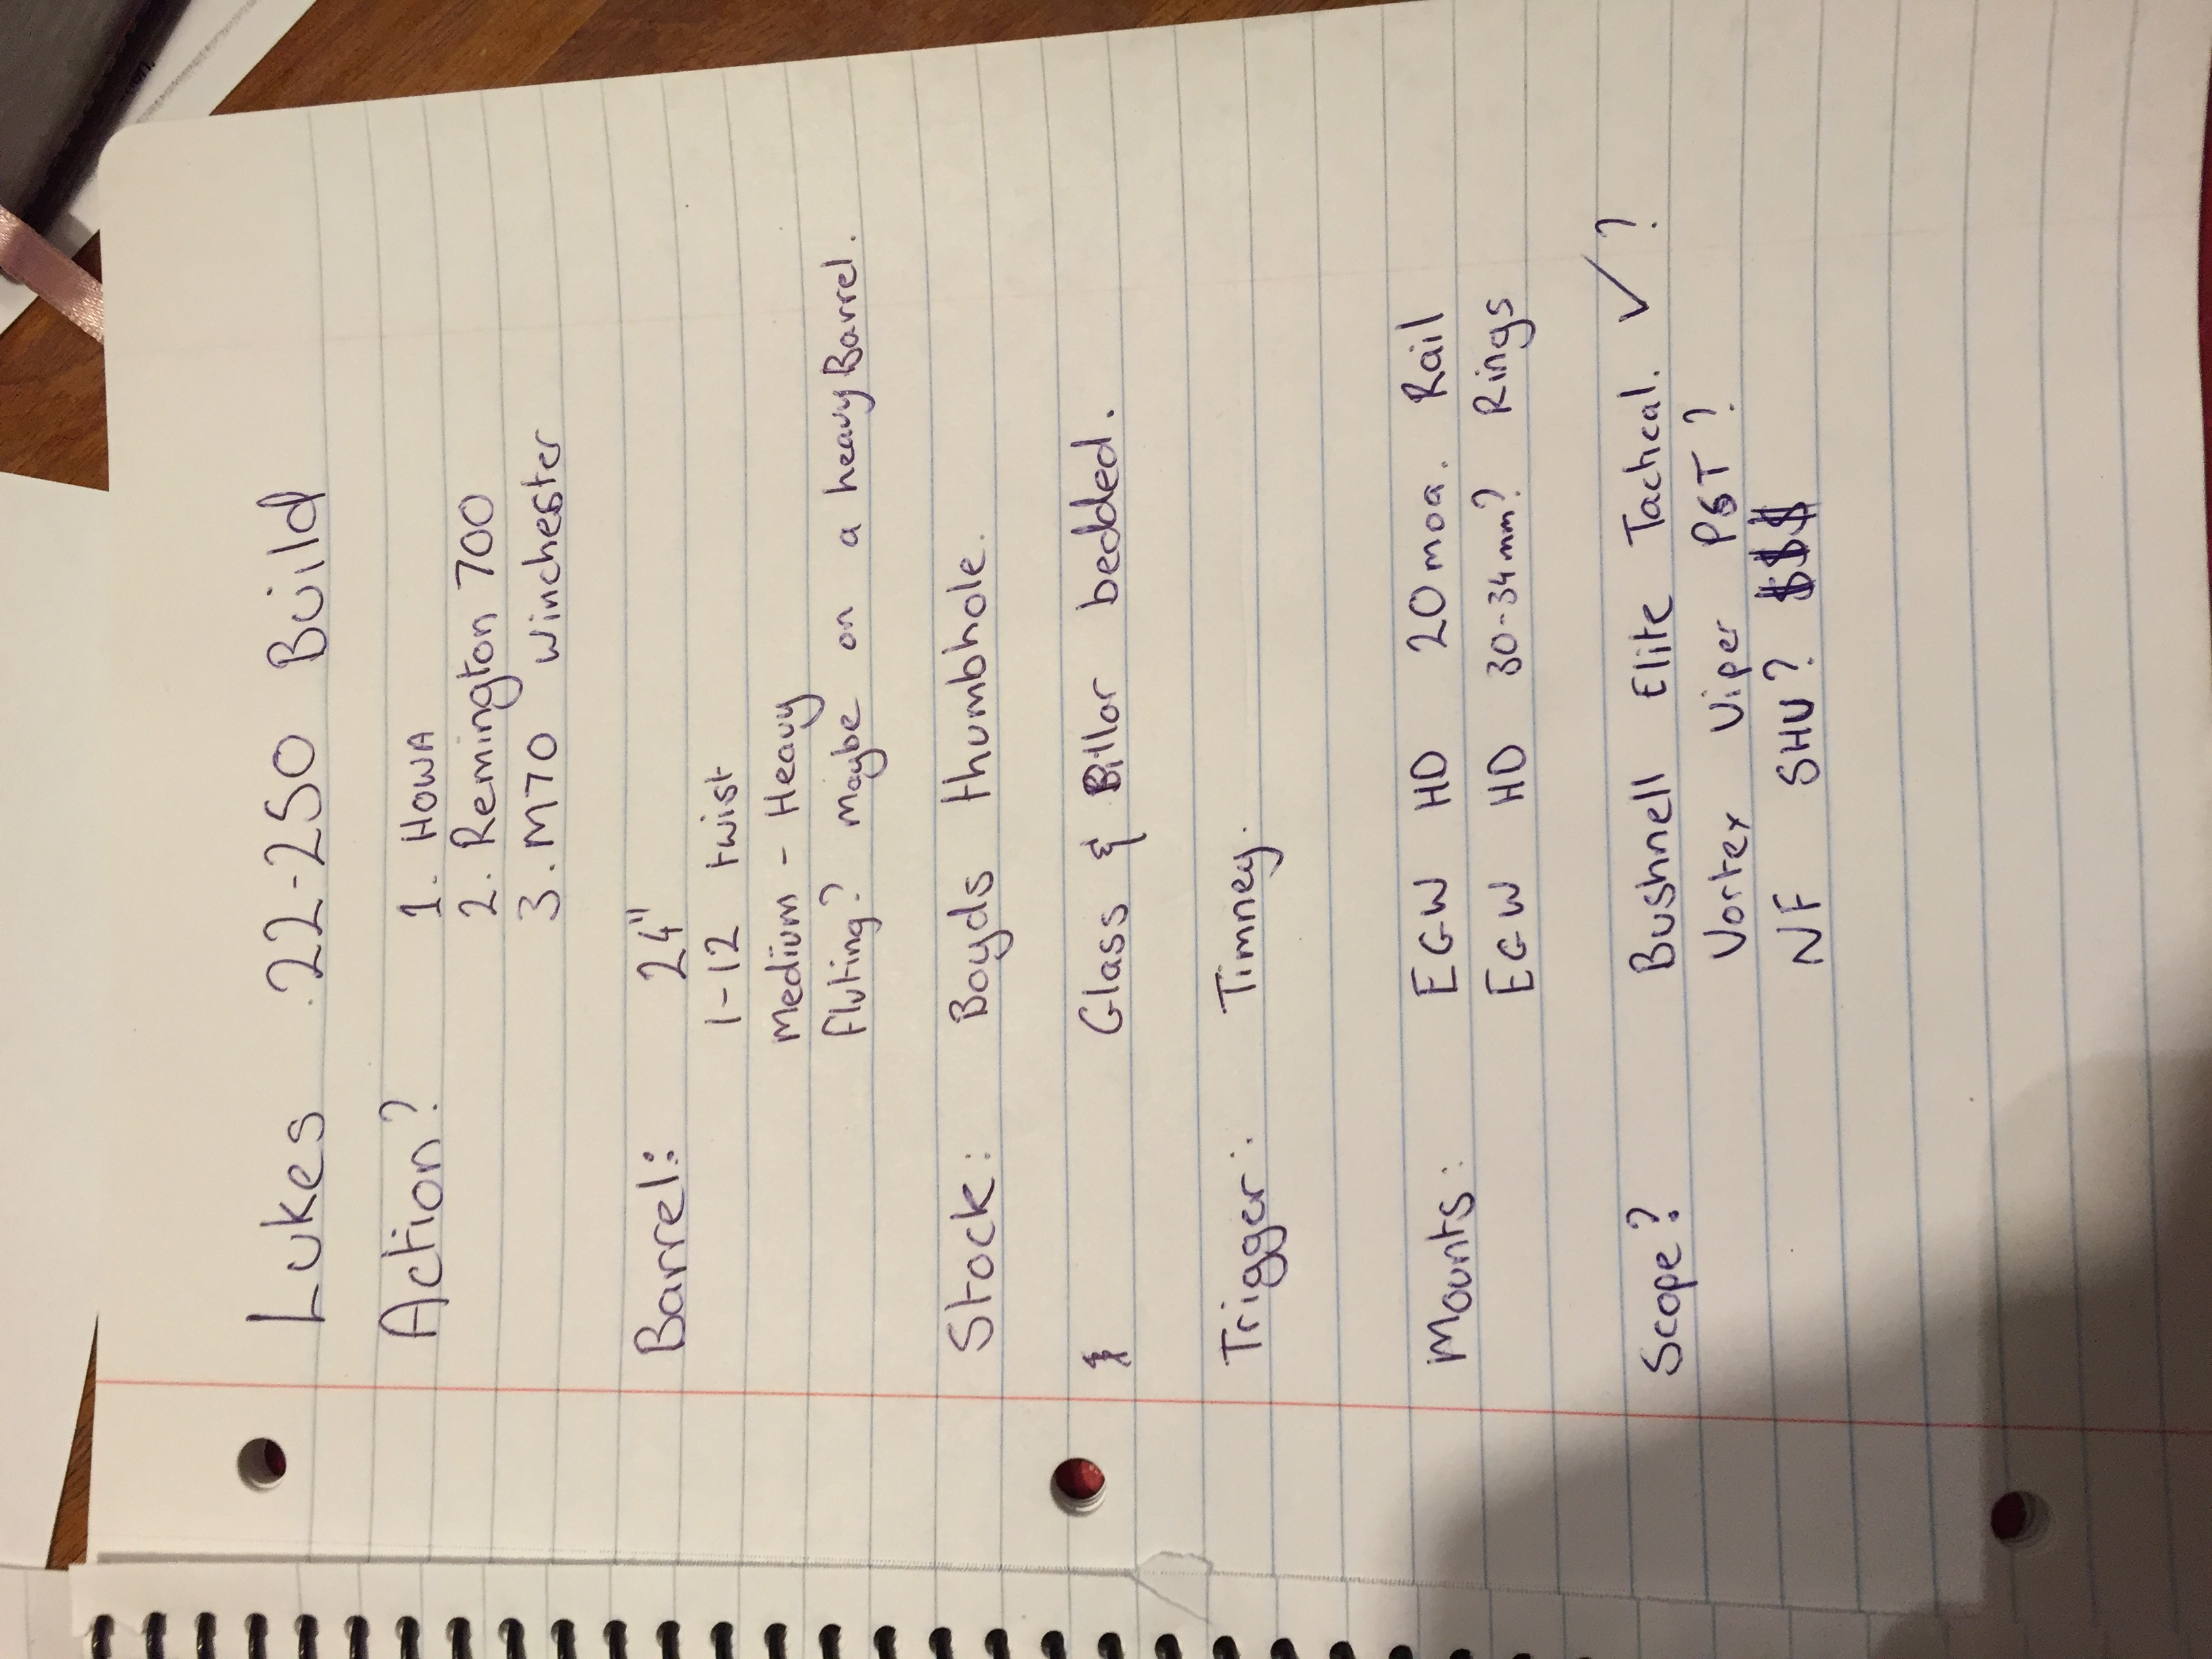 Lukes .22-250 Build
Action? 1. HOWA
2. Remington 700
3. M70 Winchester
Barrel: 24"
1-12 twist
Medium - Heavy
fluting? maybe on a heavy Barrel.
Stock: Boyds thumbhole.
Glass & Pillor bedded.
Trigger: Timney.
Mounts: EGW HD 20moa. Rail
EGW HD 30-34mm? Rings
Scope? Bushnell Elite Tactical. ✓?
Vortex Viper PST?
NF SHV? $$$